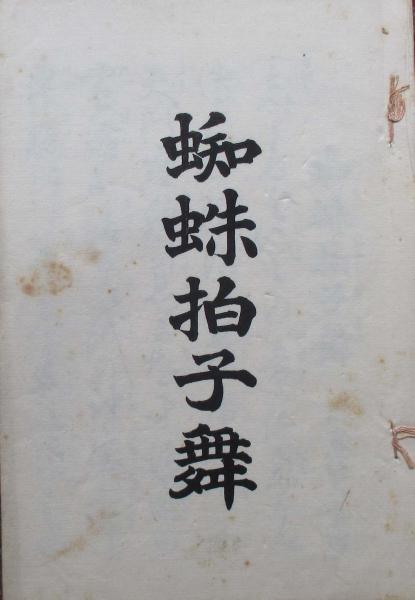 蜘蛛拍子舞